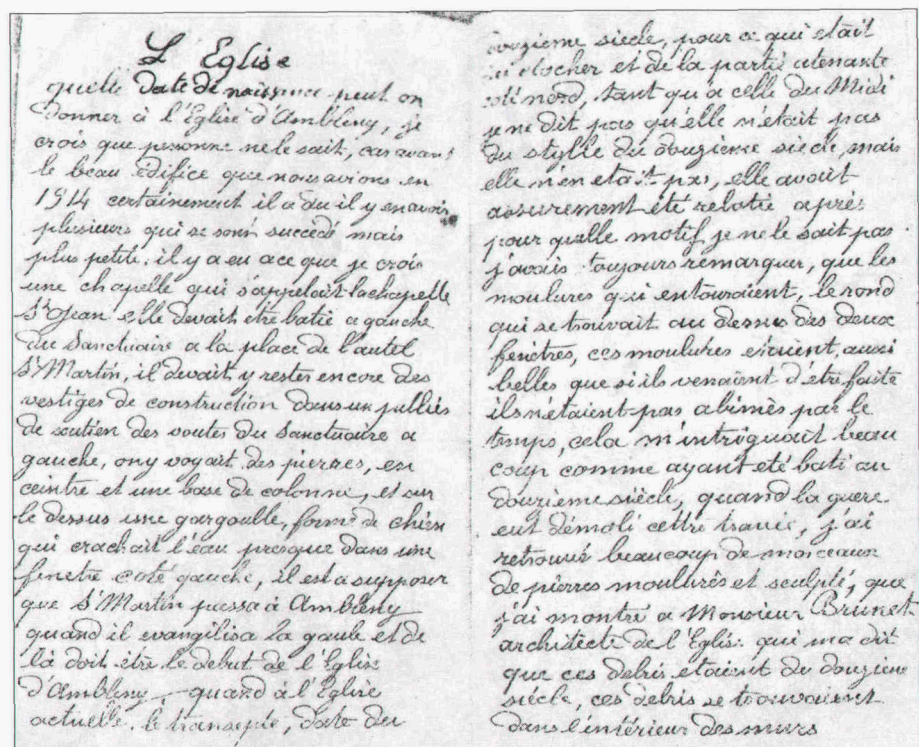 L'Eglise
quelle date de naissance peut on
donner à l'Eglise d'Ambleny, je
crois que personne ne le sait, car avant
le beau édifice que nous avions en
1914 certainement il a du il y en avoir
plusieurs qui se sont succedé mais
plus petite, il y a eu a ce que je crois
une chapelle qui s'appelait la chapelle
St Jean elle devait etre batie a gauche
du Sanctuaire a la place de l'autel
St Martin, il devait y rester encore des
vestiges de construction dans un pilliés
de soutien des voutes du Sanctuaire a
gauche, on y voyait des pierres, en
ceintre et une base de colonne, et sur
le dessus une gargoulle, forme de chien
qui crachait l'eau presque dans une
fenetre coté gauche, il est a supposer
que St Martin passa à Ambleny
quand il evangilisa la gaule et de
là doit être le debut de l'Eglise
d'Ambleny quand à l'Eglise
actuelle, le transepte, date du
douzieme siecle, pour ce qui était
du clocher et de la partie atenante
coté nord, tant qu a celle du Midi
je ne dit pas qu'elle n'était pas
du stylle du douzieme siècle, mais
elle n'en etait pas, elle avait
assurement été rebatie après
pour quelle motif je ne le sait pas
j'avais toujours remarquer, que les
moulures qui entouraient, le rond
qui se trouvait au dessus des deux
fenêtres, ces moulures etaient, aussi
belles que si ils venaient d'être faite
ils n'étaient pas abimès par le
temps, cela m'intriguait beau
coup comme ayant eté bati au
douzieme siècle, quand la guere
eut démoli cettre travée, j'ai
retrouvé beaucoup de morceaux
de pierres moulurés et sculpté, que
j'ai montré a Monsieur Brunet
architecte de l'Eglise qui ma dit
que ces debris etaient du douzieme
siècle, ces debris se trouvaient
dans l'intérieur des murs